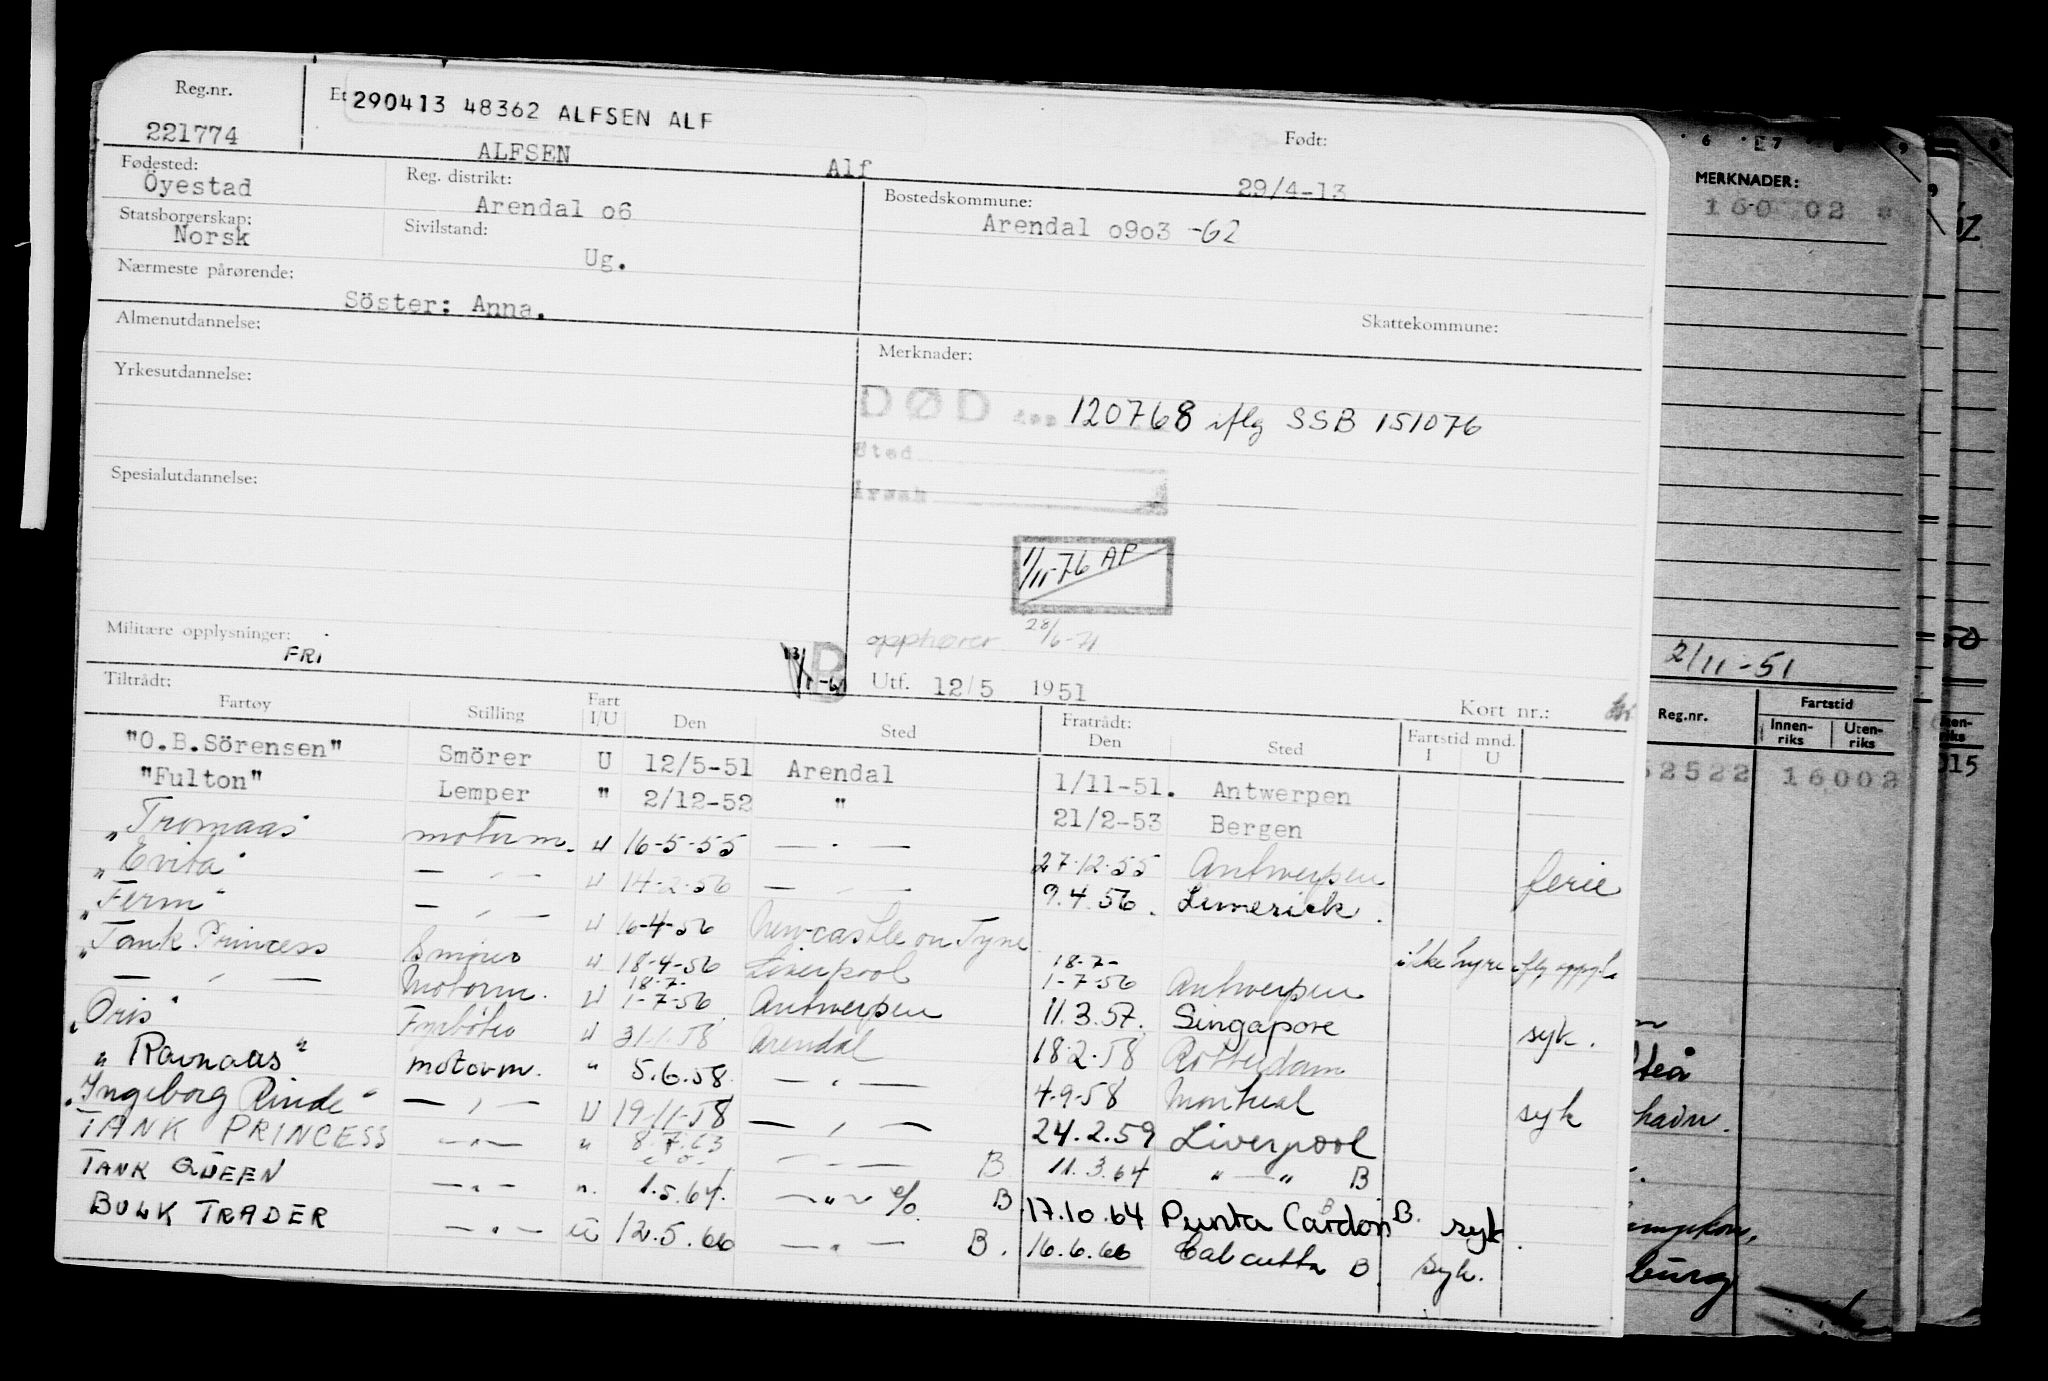 Reg.nr. 221774
290413 48362 ALFSEN ALF
ALFSEN Alf
Født: 29/4-13
Fødested: Öyestad
Reg. distrikt: Arendal o6
Bostedskommune: Arendal o9o3 -62
Statsborgerskap: Norsk
Sivilstand: Ug.
Nærmeste pårørende: Söster: Anna.
Skattekommune:
Almenutdannelse:
Merknader:
Yrkesutdannelse:
DØD den 120768 iflg SSB 151076
Sted
Årsak
Spesialutdannelse:
1/11-76 AP
opphører 28/6-71
Militære opplysninger: FRI
Utf. 12/5 1951
Kort nr.:
Tiltrådt: Fratrådt:
Fartøy Stilling Fart I/U Den Sted Den Sted Fartstid mnd. I U
"O.B.Sörensen" Smörer U 12/5-51 Arendal 1/11-51. Antwerpen
"Fulton" Lemper " 2/12-52 " 21/2-53 Bergen
"Tromaas" motorm. U 16-5-55 — " — 27.12.55 Antwerpen ferie
"Evita" — " — U 14-2-56 — " — 9.4.56. Limerick.
"Ferm" — " — U 16-4-56 Newcastle on Tyne ikke hyre iflg
"Tank Princess Smörer U 18-4-56 Liverpool 18-7- 1-7-56 Antwerpen
— " — Motorm. U 18-7- 1-7-56 Antwerpen 11.3.57. Singapore syk.
"Oris" Fyrböter U 31.1.58 Arendal 18.2.58 Rotterdam
"Ravnaas" motorm. " 5.6.58. — " — 4-9-58 Montreal syk
"Ingeborg Rinde" — " — U 19-11-58 — " — 24.2.59 Liverpool
TANK PRINCESS — " — " 8.7.63 — " — B. 11.3.64 " — " B
TANK QUEEN — " — ". 1.5.64. — " — e/o. B 17.10.64 Punta Cardon B. syk.
BULK TRADER — " — U 12.5.66 — " — B. 16.6.66 Calcutta B. syk.
MERKNADER:
160 02
2/11-51
Reg.nr. Fartstid
Innenriks Utenriks
52522 16002
015